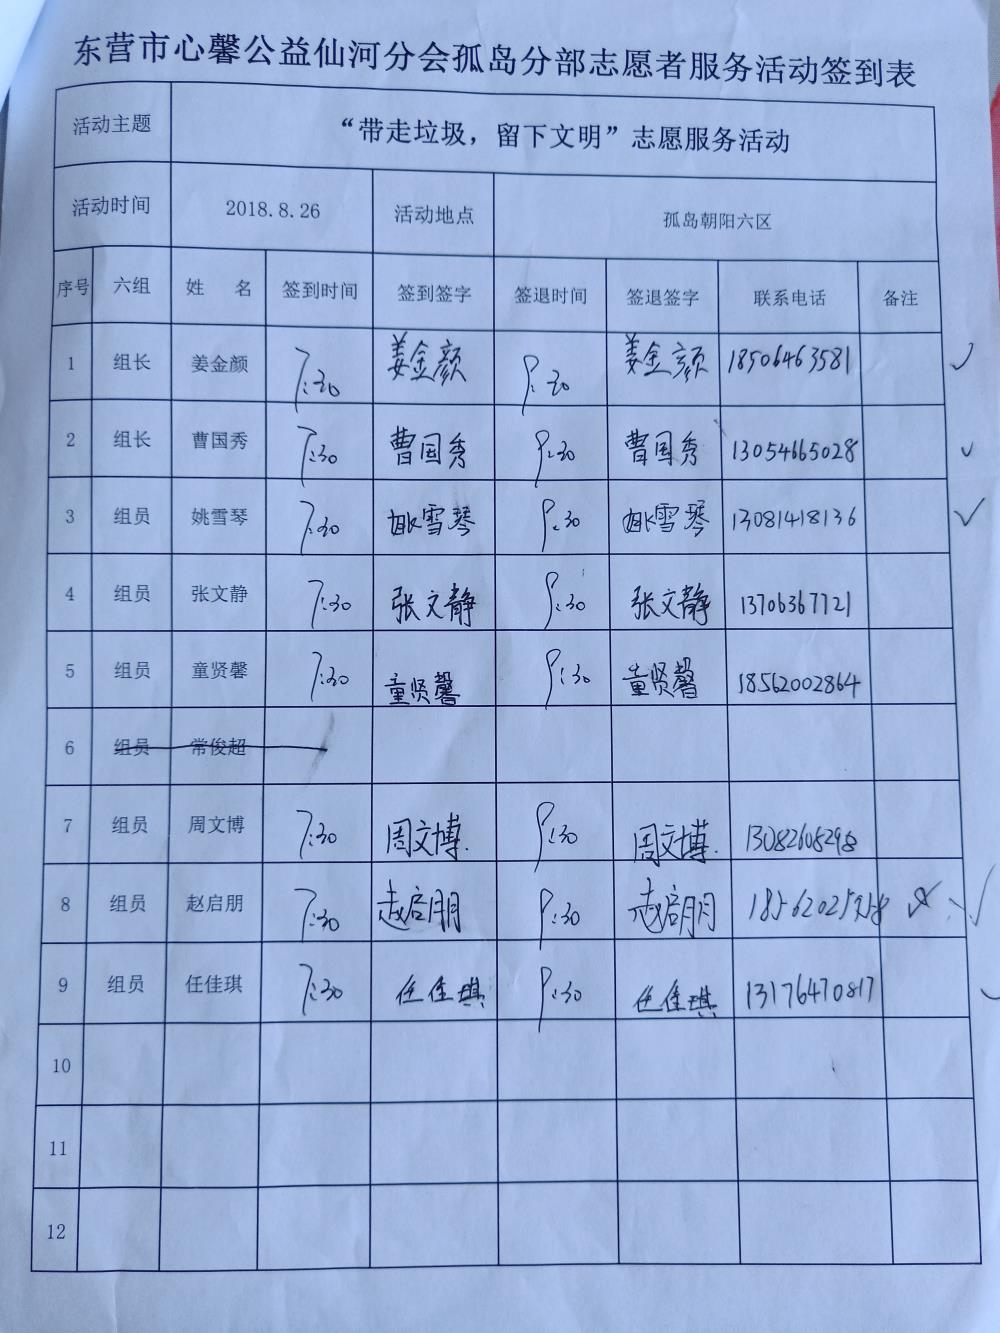 东营市心馨公益仙河分会孤岛分部志愿者服务活动签到表
活动主题 “带走垃圾，留下文明”志愿服务活动
活动时间 2018.8.26 活动地点 孤岛朝阳六区
序号 六组 姓 名 签到时间 签到签字 签退时间 签退签字 联系电话 备注
1 组长 姜金颜 7:30 姜金颜 9:30 姜金颜 18506463581
2 组长 曹国秀 7:30 曹国秀 9:30 曹国秀 13054665028
3 组员 姚雪琴 7:30 姚雪琴 9:30 姚雪琴 13081418136
4 组员 张文静 7:30 张文静 9:30 张文静 13706367721
5 组员 童贤馨 7:30 童贤馨 9:30 童贤馨 18562002864
6 组员 常俊超
7 组员 周文博 7:30 周文博. 9:30 周文博. 13082608298
8 组员 赵启朋 7:30 赵启朋 9:30 赵启朋
9 组员 任佳琪 7:30 任佳琪 9:30 任佳琪 13176470817
10
11
12